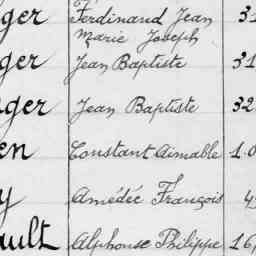 ger Ferdinand Jean 31
Marie Joseph
ger Jean Baptiste 31
ger Jean Baptiste 32
en Constant Aimable 1.0
y Amédée François 4
ault Alphonse Philippe 16